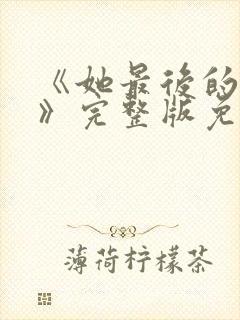 《她最後的
》完整版免
薄荷柠檬茶